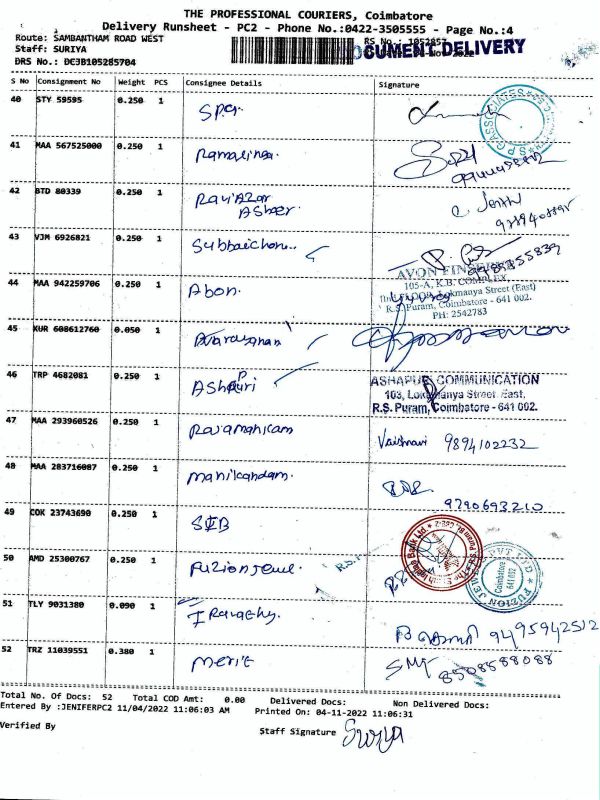 THE PROFESSIONAL COURIERS, Coimbatore
Delivery Runsheet - PC2 - Phone No.:0422-3505555 - Page No.:4
Route: SAMBANTHAM ROAD WEST
Staff: SURIYA
DRS No.: DC3B105285704
RS No.: 1052857
DOCUMENT DELIVERY
S No Consignment No Weight PCS Consignee Details Signature
40 STY 59595 0.250 1 S.P.G.
41 MAA 567525000 0.250 1 Ramalinga
42 BTD 80339 0.250 1
43 VJM 6926821 0.250 1
AVON FINSERVE
105-A, K.B. COMPLEX,
FLOOR, Lokmanya Street (East)
R.S. Puram, Coimbatore - 641 002.
PH: 2542783
44 MAA 942259706 0.250 1 Abon
45 KUR 608612760 0.050 1
46 TRP 4682081 0.250 1 Ashpuri
ASHAPURI COMMUNICATION
103, Lokmanya Street East,
R.S. Puram, Coimbatore - 641 002.
47 MAA 293960526 0.250 1 Rajamanicam Vaishnavi 9894102232
48 MAA 283716087 0.250 1 Manikandam 9790693210
49 COK 23743690 0.250 1 SIB
50 AMD 25300767 0.250 1 Fuzion Jewe
Coimbatore
641 002
51 TLY 9031380 0.090 1 9495942512
52 TRZ 11039551 0.380 1 Merit 8508588088
Total No. Of Docs: 52 Total COD Amt: 0.00 Delivered Docs: Non Delivered Docs:
Entered By :JENIFERPC2 11/04/2022 11:06:03 AM Printed On: 04-11-2022 11:06:31
Verified By Staff Signature Suriya